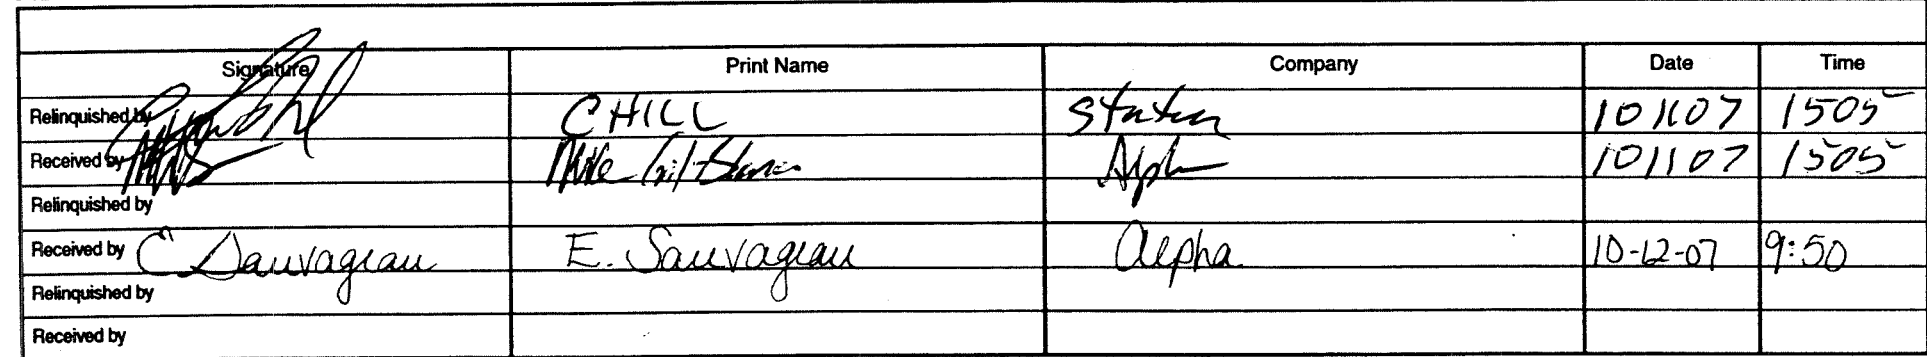 Signature Print Name Company Date Time
Relinquished by CHILL 101107 1505
Received by Mike Alpha 101107 1505
Relinquished by
Received by E. Sauvageau E. Sauvageau Alpha 10-12-07 9:50
Relinquished by
Received by